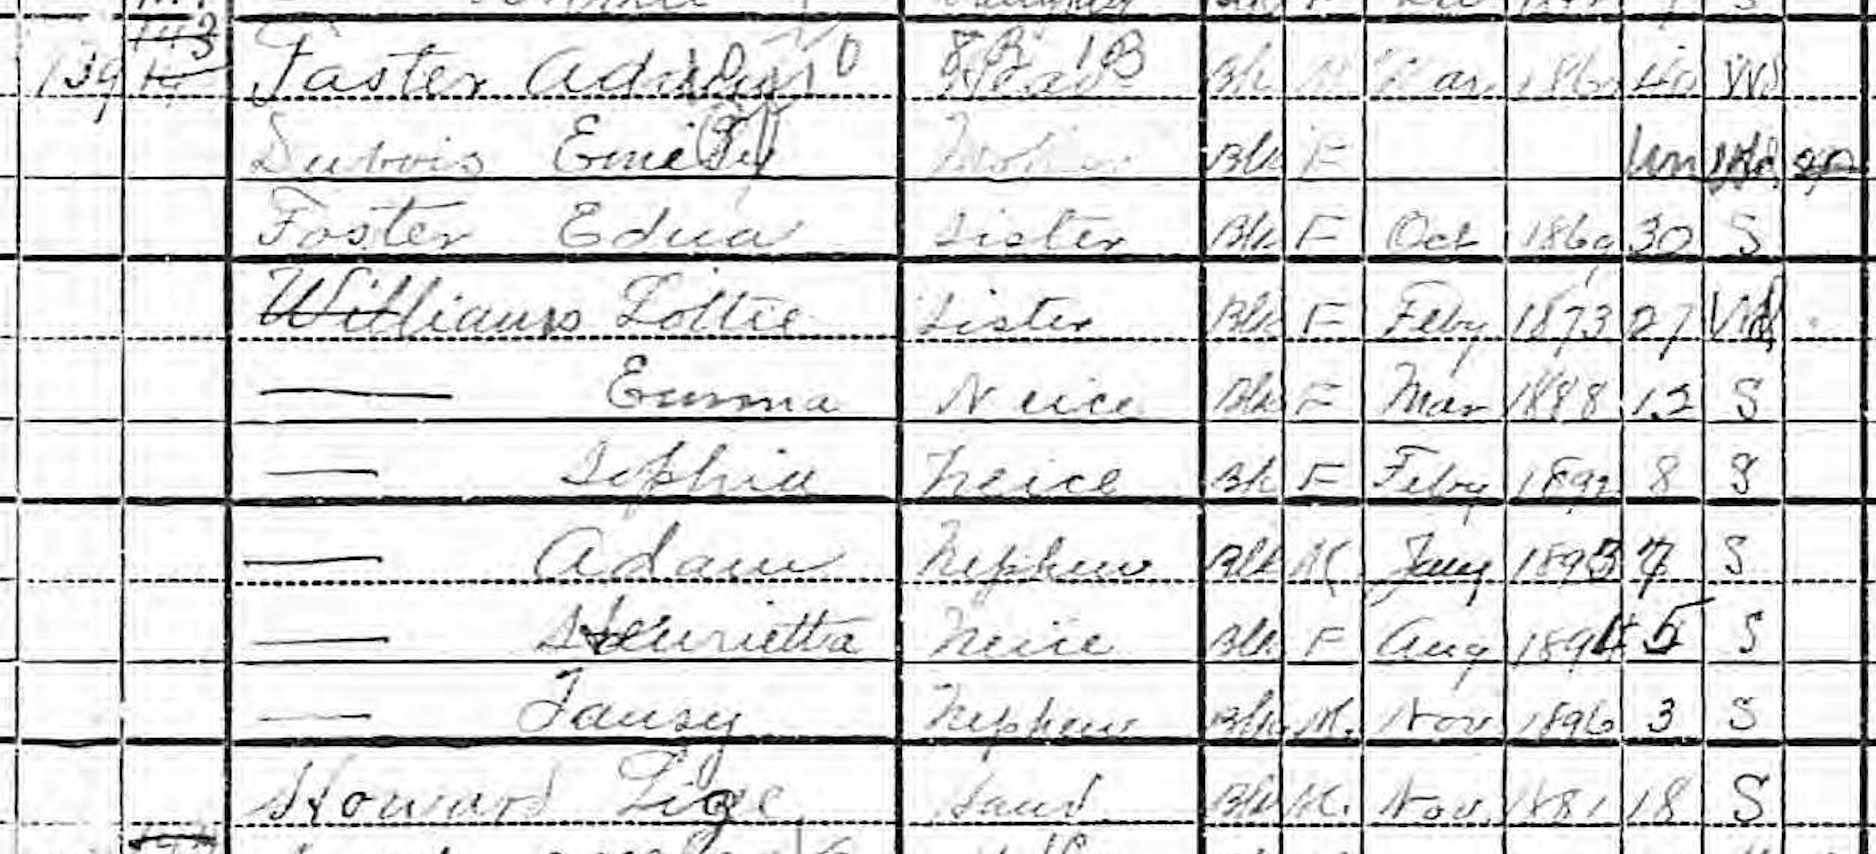 139 143 Foster Adam Head Blk M Mar 1860 40 Wd
Dubois Emely Mother Blk F Un Wd
Foster Edua Sister Blk F Oct 1869 30 S
Williams Lottie Sister Blk F Feby 1873 27 Wd
— Emma Neice Blk F Mar 1888 12 S
— Sophia Neice Blk F Feby 1892 8 S
— Adam Nephew Blk M. Jany 1893 7 S
— Henrietta Neice Blk F Aug 1894 5 S
— Nephew Blk M. Nov 1896 3 S
Howard Lige Blk M. Nov. 1881 18 S